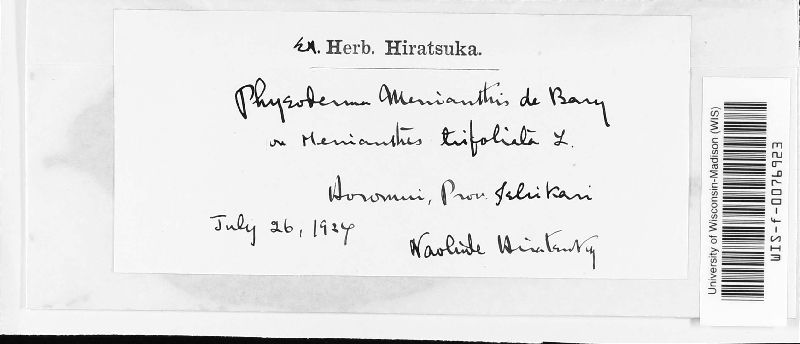 Ex. Herb. Hiratsuka.
Physoderma Menianthis de Bary
on Menianthes trifoliata L.
Horomui, Prov. Ishikari
July 26, 1924
Naohide Hiratsuka
University of Wisconsin-Madison (WIS)
WIS-f-0076923